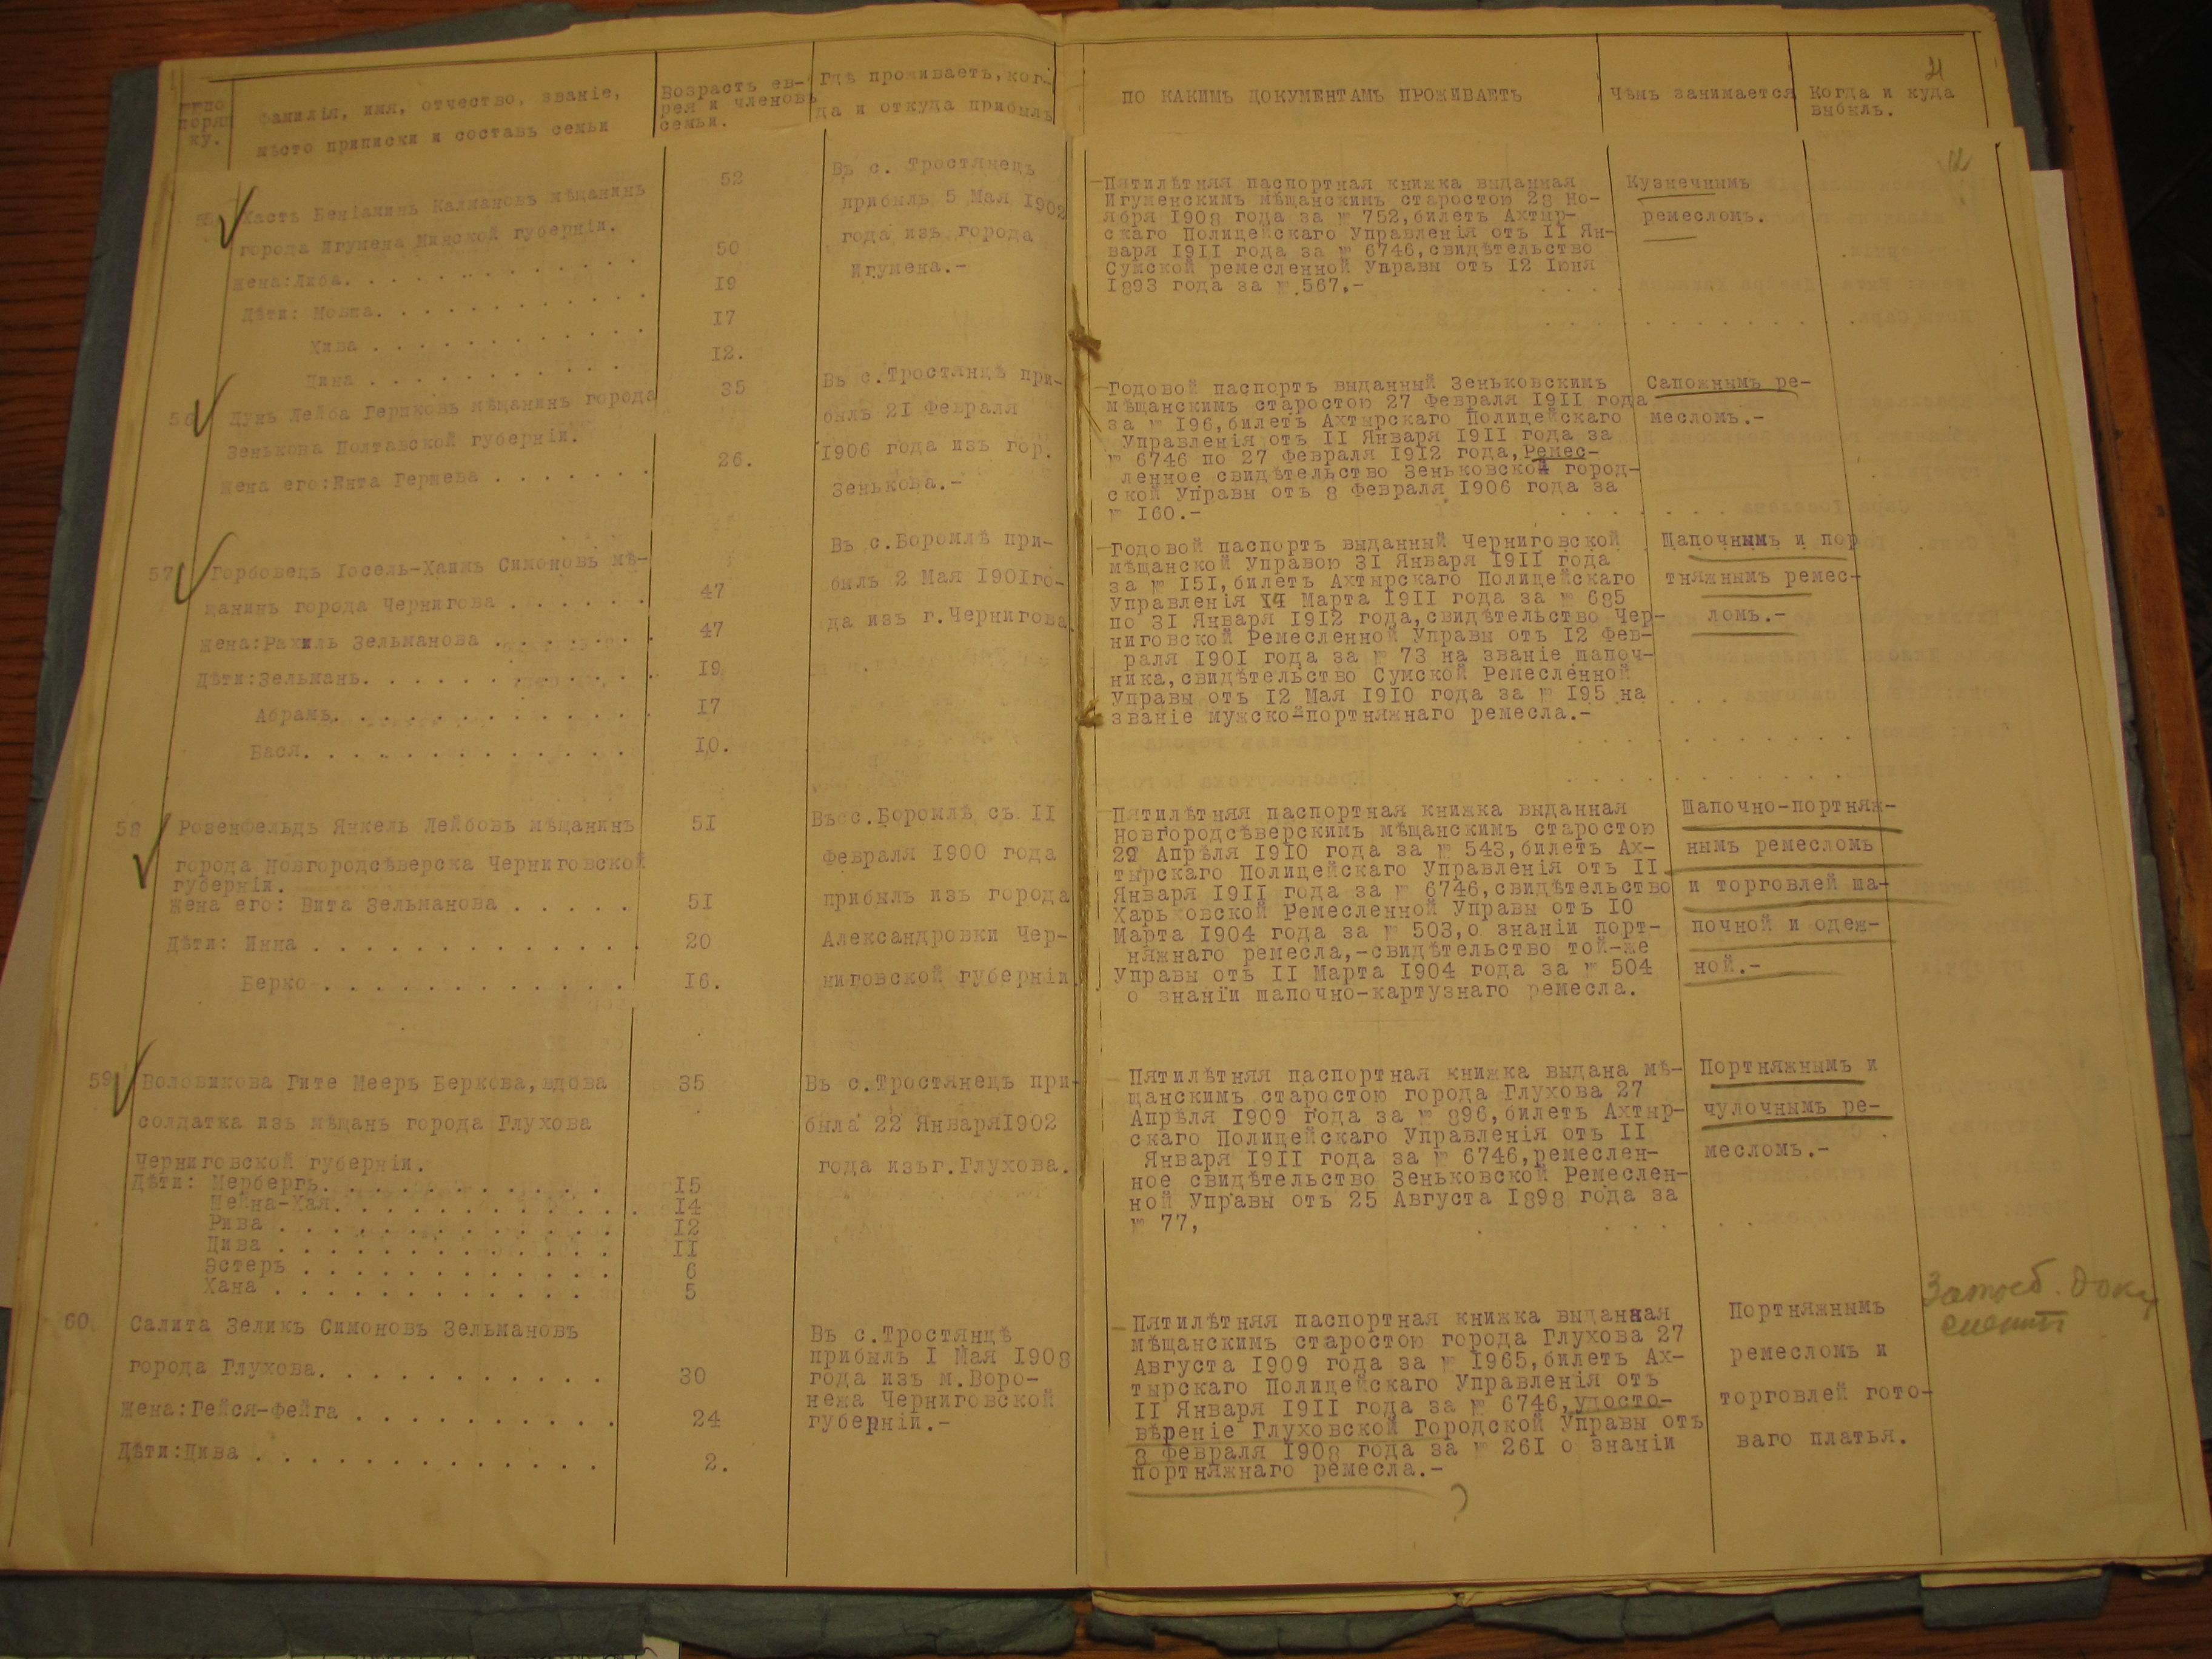 № по
поряд
ку.
Фамилія, имя, отчество, званіе,
мѣсто приписки и составъ семьи
Возрастъ ев-
рея и членовъ
семьи.
Гдѣ проживаетъ, ког-
да и откуда прибылъ
ПО КАКИМЪ ДОКУМЕНТАМЪ ПРОЖИВАЕТЪ
Чѣмъ занимается
Когда и куда
выбылъ.
21
Хастъ Веніаминъ Калмановъ мѣщанинъ
города Игумена Минской губерніи.
Жена:Либа. . . . . . . . . . . .
Дѣти: Мовша. . . . . . . . . . .
Хива . . . . . . . . . . .
Цина . . . . . . . . . . .
52
50
19
17
12.
Въ с. Тростянецъ
прибылъ 5 Мая 1902
года изъ города
Игумена.-
Пятилѣтняя паспортная книжка выданная
Игуменскимъ мѣщанскимъ старостою 28 Но-
ября 1908 года за № 752,билетъ Ахтыр-
скаго Полицейскаго Управленія отъ II Ян-
варя 1911 года за № 6746,свидѣтельство
Сумской ремесленной Управы отъ 12 Іюня
1893 года за №.567.-
Кузнечнымъ
ремесломъ.
56
Лунь Лейба Гериковъ мѣщанинъ города
Зенькова Полтавской губерніи.
Жена его:Ента Гершева . . . . . .
35
26.
Въ с.Тростянцѣ при-
былъ 21 Февраля
1906 года изъ гор.
Зенькова.-
Годовой паспортъ выданный Зеньковскимъ
мѣщанскимъ старостою 27 Февраля 1911 года
за № 196,билетъ Ахтырскаго Полицейскаго
Управленія отъ II Января 1911 года за
№ 6746 по 27 Февраля 1912 года,Ремес-
ленное свидѣтельство Зеньковской город-
ской Управы отъ 8 Февраля 1906 года за
№ 160.-
Сапожнымъ ре-
месломъ.-
57
Горбовецъ Іосель-Хаимъ Симоновъ мѣ-
щанинъ города Чернигова . . . . . .
Жена:Рахиль Зельманова . . . . . . .
Дѣти:Зельманъ. . . . . . . . . . . .
Абрамъ. . . . . . . . . . . . .
Бася. . . . . . . . . . . . .
47
47
19
17
10.
Въ с.Боромлѣ при-
былъ 2 Мая 1901го-
да изъ г.Чернигова.
Годовой паспортъ выданный Черниговской
мѣщанской Управою 31 Января 1911 года
за № 151,билетъ Ахтырскаго Полицейскаго
Управленія 14 Марта 1911 года за № 685
по 31 Января 1912 года,свидѣтельство Чер-
ниговской Ремесленной Управы отъ 12 Фев-
раля 1901 года за № 73 на званіе шапоч-
ника,свидѣтельство Сумской Ремесленной
Управы отъ 12 Мая 1910 года за № 195 на
званіе мужско-портняжнаго ремесла.-
Шапочнымъ и пор
тняжнымъ ремес-
ломъ.-
58
Розенфельдъ Янкель Лейбовъ мѣщанинъ
города Новгородсѣверска Черниговской
губерніи.
Жена его: Вита Зельманова . . . . .
Дѣти: Инна . . . . . . . . . . . . .
Берко . . . . . . . . . . . .
51
51
20
16.
Въсс.Боромлѣ съ II
Февраля 1900 года
прибылъ изъ города
Александровки Чер-
ниговской губерніи.
Пятилѣтняя паспортная книжка выданная
Новгородсѣверскимъ мѣщанскимъ старостою
29 Апрѣля 1910 года за № 543,билетъ Ах-
тырскаго Полицейскаго Управленія отъ II
Января 1911 года за № 6746,свидѣтельство
Харьковской Ремесленной Управы отъ 10
Марта 1904 года за № 503,о знаніи порт-
няжнаго ремесла,-свидѣтельство той-же
Управы отъ II Марта 1904 года за № 504
о знаніи шапочно-картузнаго ремесла.
Шапочно-портняж-
нымъ ремесломъ
и торговлей ша-
почной и одеж-
ной.-
59
Воловикова Гите Мееръ Беркова,вдова
солдатка изъ мѣщанъ города Глухова
Черниговской губерніи.
Дѣти: Мербергъ. . . . . . . . . . .
Шейна-Хая. . . . . . . . . . . .
Рива . . . . . . . . . . . . .
Цива . . . . . . . . . . . . .
Эстеръ . . . . . . . . . . . .
Хана . . . . . . . . . . . .
35
15
14
12
II
6
5
Въ с.Тростянецъ при-
была 22 Января1902
года изъг.Глухова.
Пятилѣтняя паспортная книжка выдана мѣ-
щанскимъ старостою города Глухова 27
Апрѣля 1909 года за № 896,билетъ Ахтыр-
скаго Полицейскаго Управленія отъ II
Января 1911 года за № 6746,ремеслен-
ное свидѣтельство Зеньковской Ремеслен-
ной Управы отъ 25 Августа 1898 года за
№ 77,
Портняжнымъ и
чулочнымъ ре-
месломъ.-
60
Салита Зеликъ Симоновъ Зельмановъ
города Глухова. . . . . . . . . . .
Жена:Гейся-Фейга . . . . . . . . . .
Дѣти:Цива . . . . . . . . . . . . .
30
24
2.
Въ с.Тростянцѣ
прибылъ I Мая 1908
года изъ м.Воро-
нежа Черниговской
губерніи.-
Пятилѣтняя паспортная книжка выданная
мѣщанскимъ старостою города Глухова 27
Августа 1909 года за № 1965,билетъ Ах-
тырскаго Полицейскаго Управленія отъ
II Января 1911 года за № 6746,удосто-
вѣреніе Глуховской Городской Управы отъ
8 Февраля 1908 года за № 261 о знаніи
портняжнаго ремесла.-
Портняжнымъ
ремесломъ и
торговлей гото-
ваго платья.